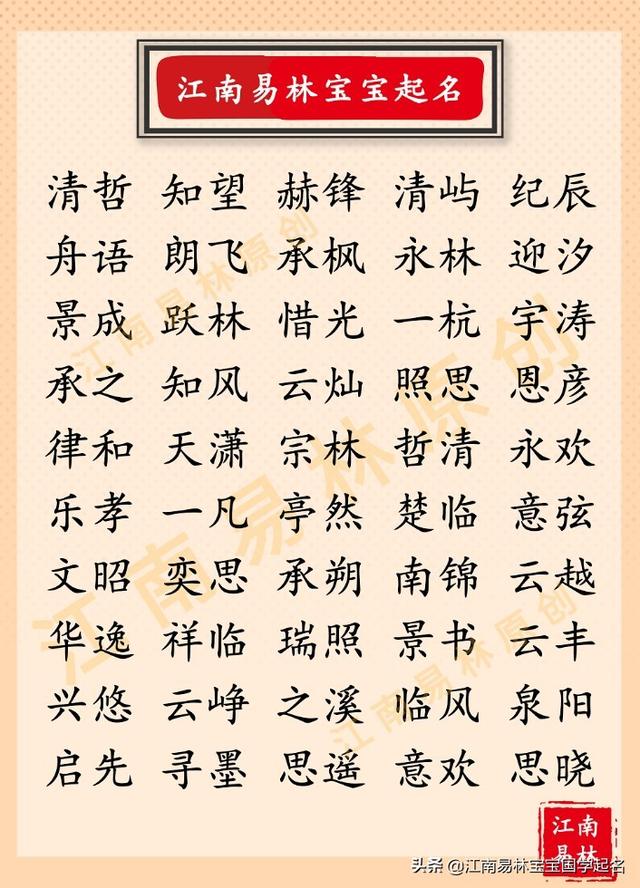 江南易林宝宝起名
清哲 知望 赫锋 清屿 纪辰
舟语 朗飞 承枫 永林 迎汐
景成 跃林 惜光 一杭 宇涛
承之 知风 云灿 照思 恩彦
律和 天潇 宗林 哲清 永欢
乐孝 一凡 亭然 楚临 意弦
文昭 奕思 承朔 南锦 云越
华逸 祥临 瑞照 景书 云丰
兴悠 云峥 之溪 临风 泉阳
启先 寻墨 思遥 意欢 思晓
江南易林原创
江南易林原创
江南易林原创
江南
易林
头条 @江南易林宝宝国学起名